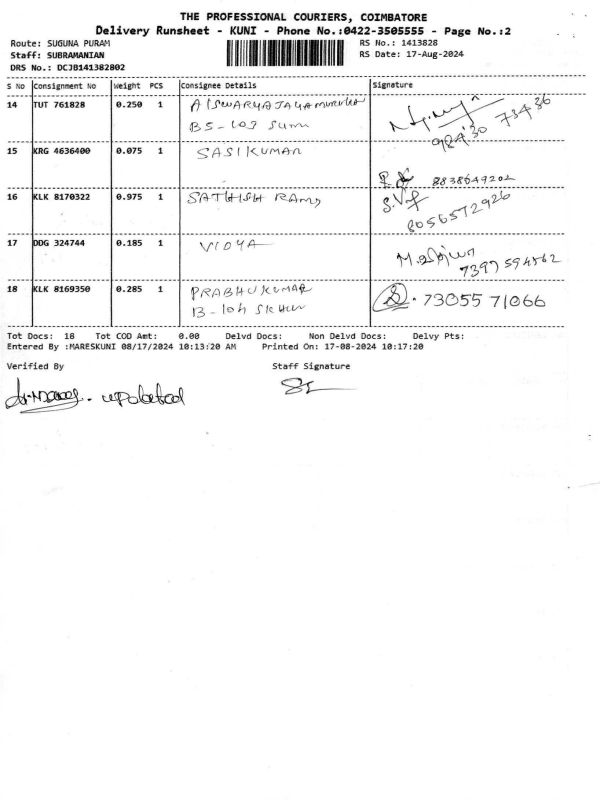 THE PROFESSIONAL COURIERS, COIMBATORE
Delivery Runsheet - KUNI - Phone No.:0422-3505555 - Page No.:2
Route: SUGUNA PURAM
RS No.: 1413828
Staff: SUBRAMANIAN
RS Date: 17-Aug-2024
DRS No.: DCJB141382802
S No Consignment No Weight PCS Consignee Details Signature
14 TUT 761828 0.250 1 AISWARYAJAYAMURUKAN
B5-103
98430 73436
15 KRG 4636400 0.075 1 SASIKUMAR
8838649202
16 KLK 8170322 0.975 1 SATHISH
8056572926
17 DDG 324744 0.185 1 VIDYA
7397594562
18 KLK 8169350 0.285 1 PRABHUKUMAR
B-104
73055 71066
Tot Docs: 18 Tot COD Amt: 0.00 Delvd Docs: Non Delvd Docs: Delvy Pts:
Entered By :MARESKUNI 08/17/2024 10:13:20 AM Printed On: 17-08-2024 10:17:20
Verified By Staff Signature
updated